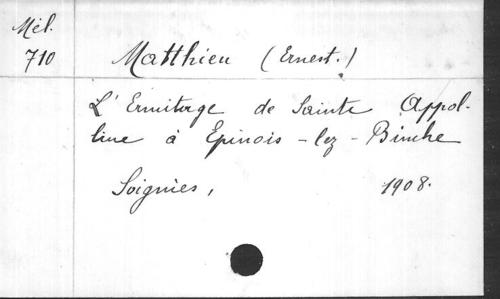 Mél.
710
Matthieu (Ernest.)
L'Ermitage de Sainte Appol-
line à Epinois-lez-Binche
Soignies, 1908.